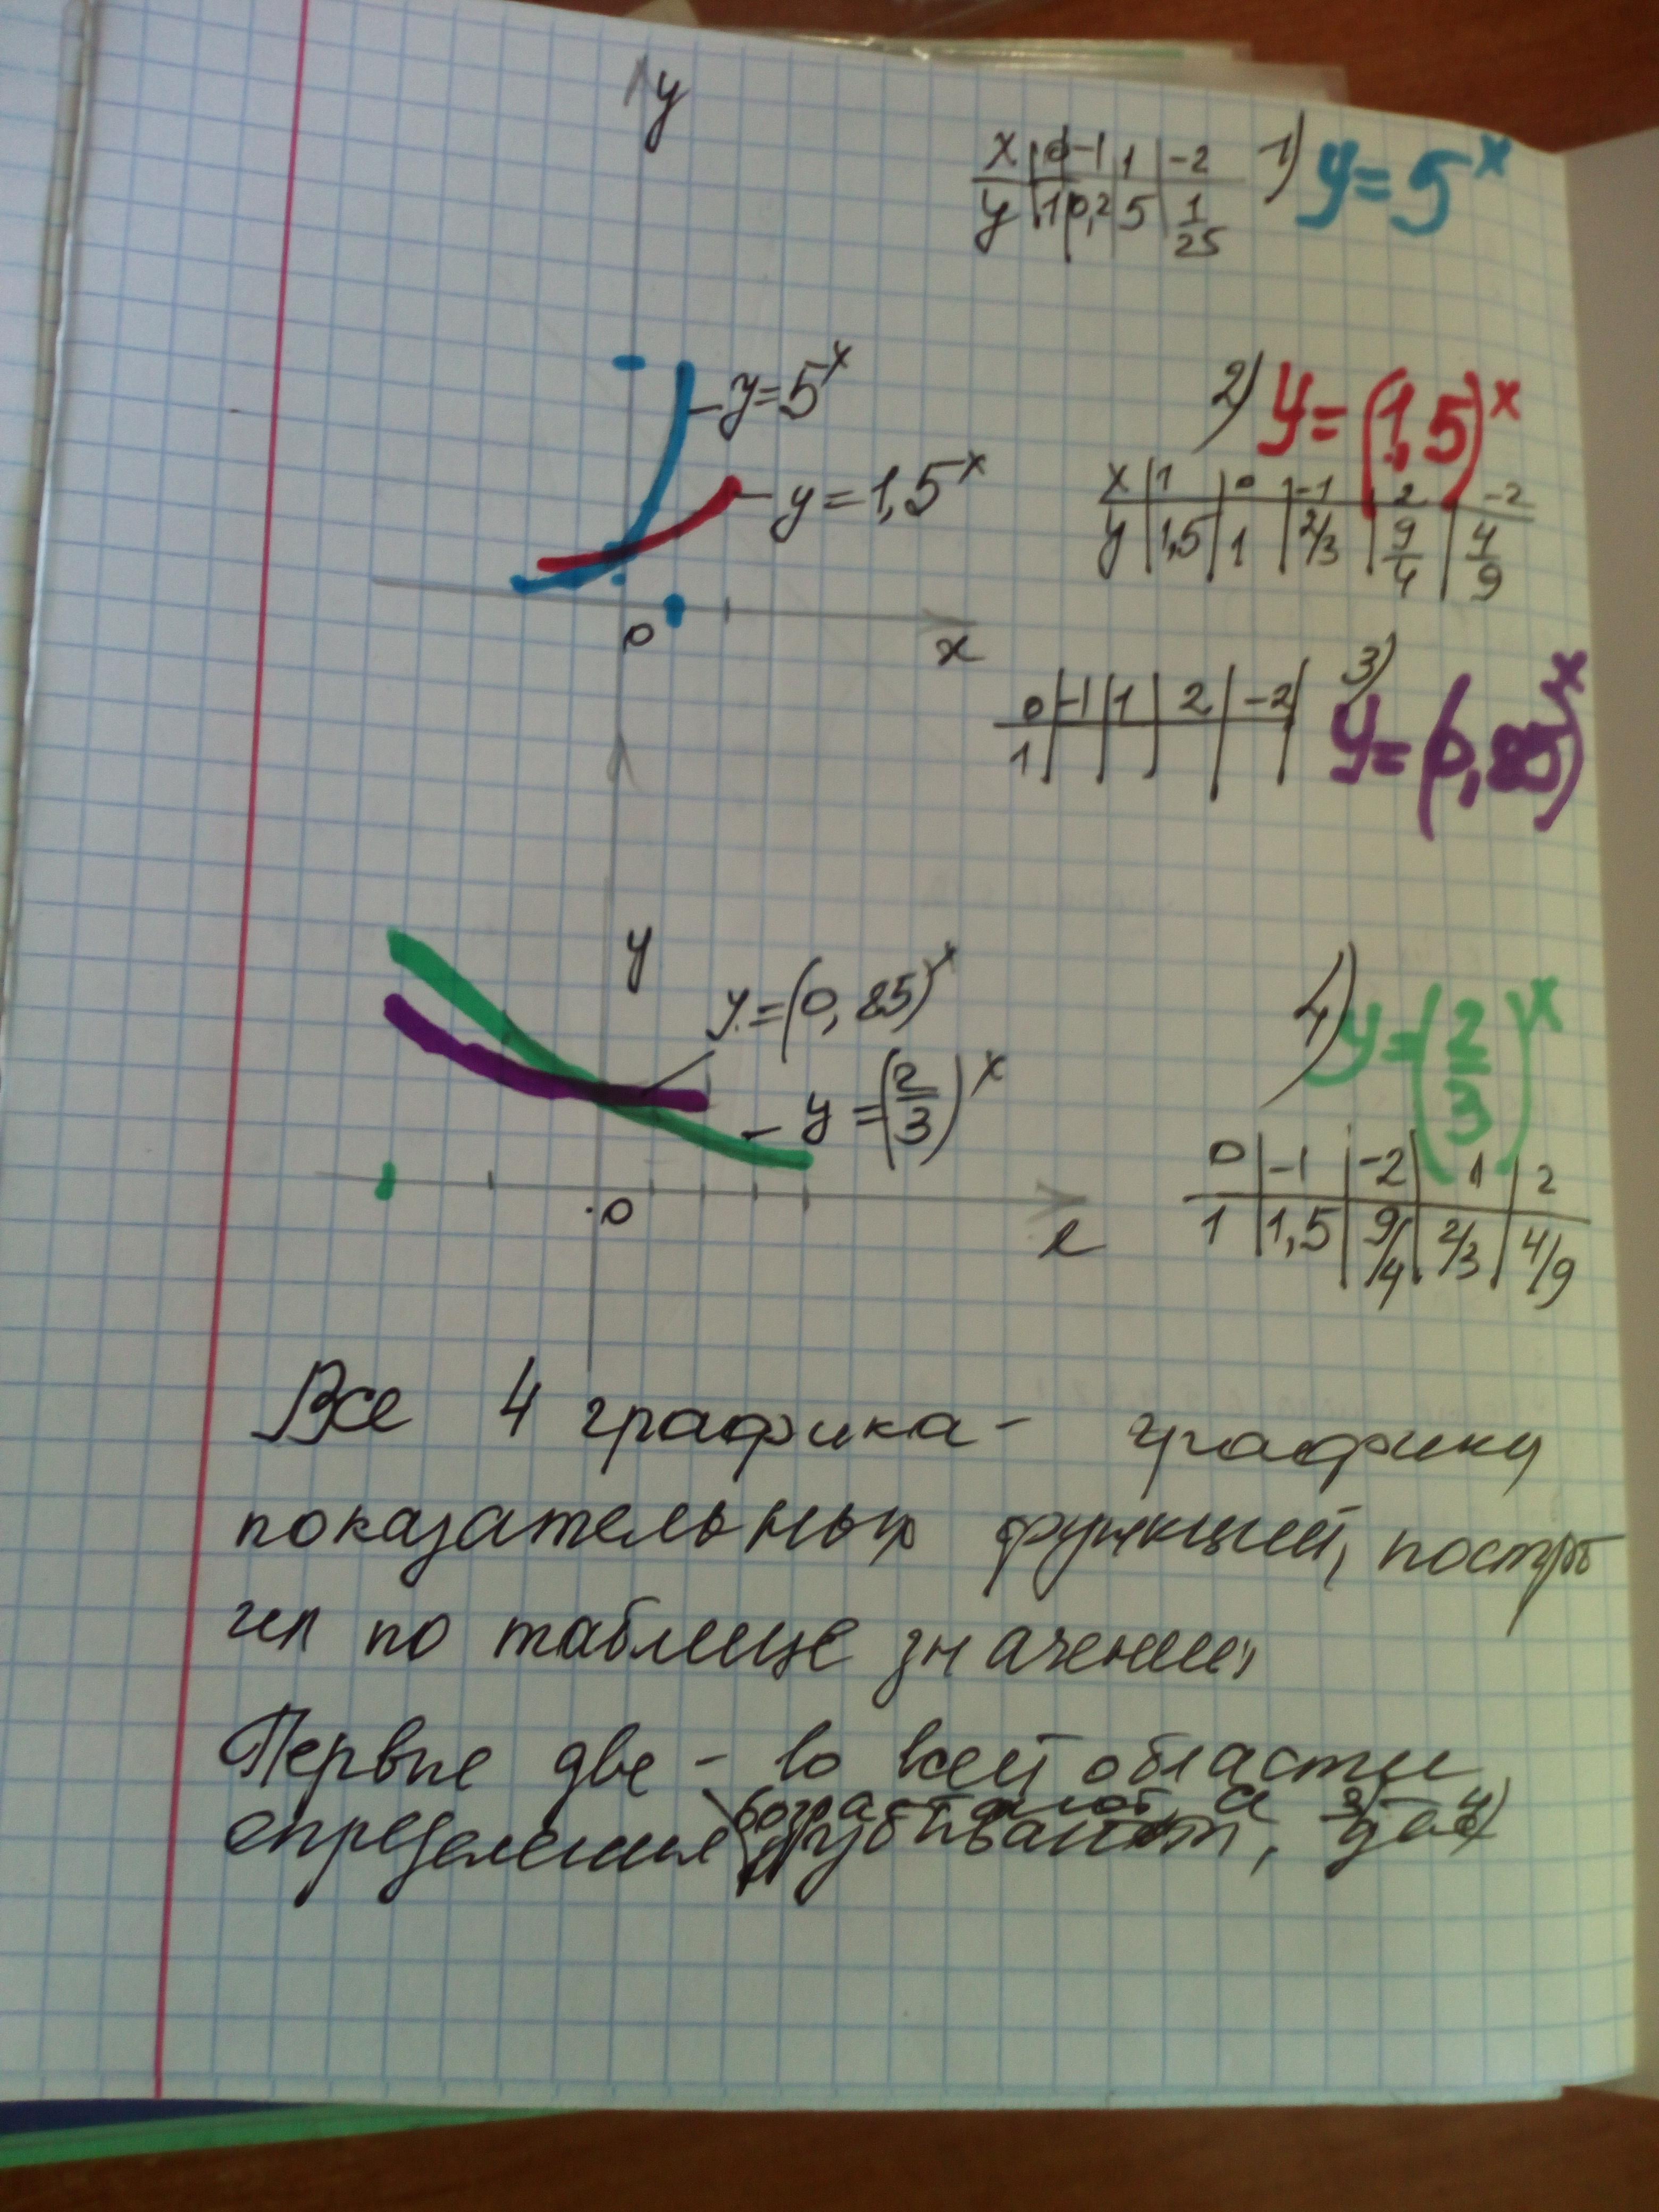 y
x 0 -1 1 -2
y 1 0,2 5 1/25
1) y=5^x
y=5^x
2) y=(1,5)^x
y=1,5^x
x 1 0 -1 2 -2
y 1,5 1 2/3 9/4 4/9
0
x
3) y=(0,85)^x
0 -1 1 2 -2
1
y
y=(0,85)^x
4) y=(2/3)^x
y=(2/3)^x
0 -1 -2 1 2
1 1,5 9/4 2/3 4/9
0
Все 4 графика - графики
показательных функций, постро
ил по таблице значений,
Первые две - во всей области
возрастают, а 3) 4)
определения убывают,